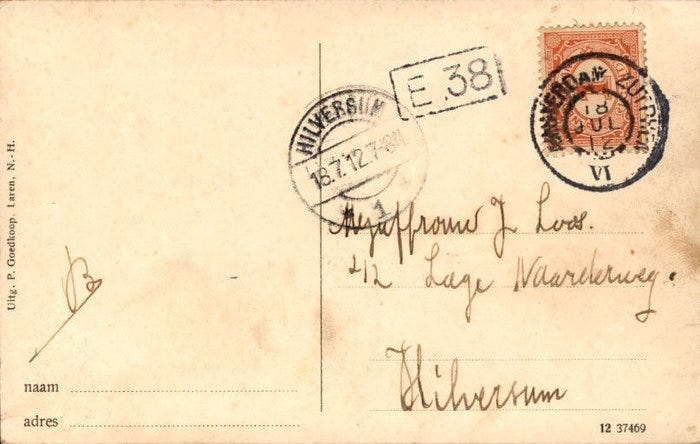 E.38
HILVERSUM
18.7.12.7-8N
1
AMSTERDAM ZUTPHEN
18
JUL
12
VI
Mejuffrouw J. Loos.
212 Lage Naarderweg.
Hilversum
Uitg. P. Goedkoop. Laren, N.-H.
B
naam
adres
12 37469